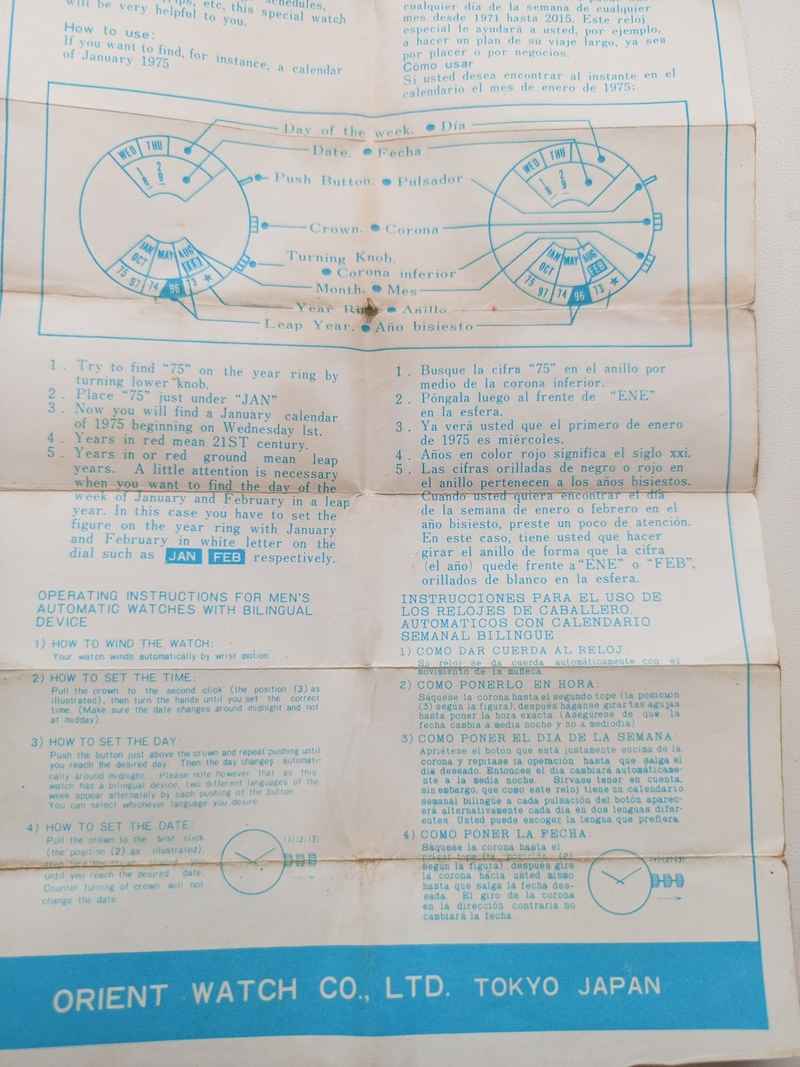 schedules,
trips, etc, this special watch
will be very helpful to you.
How to use:
If you want to find, for instance, a calendar
of January 1975
cualquier día de la semana de cualquier
mes desde 1971 hasta 2015. Este reloj
especial le ayudará a usted, por ejemplo,
a hacer un plan de su viaje largo, ya sea
por placer o por negocios.
Cómo usar
Si usted desea encontrar al instante en el
calendario el mes de enero de 1975:
Day of the week. Día
Date. Fecha
Push Button. Pulsador
Crown. Corona
Turning Knob.
Corona inferior
Month. Mes
Year Ring Anillo
Leap Year. Año bisiesto
WED THU
1 8 2 9
JAN MAY AUG
OCT FEB
75 97 74 96 73 ★
WED THU
1 8 2 9
JAN MAY AUG
OCT FEB
75 97 74 96 73 ★
1. Try to find "75" on the year ring by
turning lower knob.
2. Place "75" just under "JAN"
3. Now you will find a January calendar
of 1975 beginning on Wednesday 1st.
4. Years in red mean 21ST century.
5. Years in or red ground mean leap
years. A little attention is necessary
when you want to find the day of the
week of January and February in a leap
year. In this case you have to set the
figure on the year ring with January
and February in white letter on the
dial such as JAN FEB respectively.
1. Busque la cifra "75" en el anillo por
medio de la corona inferior.
2. Póngala luego al frente de "ENE"
en la esfera.
3. Ya verá usted que el primero de enero
de 1975 es miércoles.
4. Años en color rojo significa el siglo xxi.
5. Las cifras orilladas de negro o rojo en
el anillo pertenecen a los años bisiestos.
Cuando usted quiera encontrar el día
de la semana de enero o febrero en el
año bisiesto, preste un poco de atención.
En este caso, tiene usted que hacer
girar el anillo de forma que la cifra
(el año) quede frente a "ENE" o "FEB",
orillados de blanco en la esfera.
OPERATING INSTRUCTIONS FOR MEN'S
AUTOMATIC WATCHES WITH BILINGUAL
DEVICE
1) HOW TO WIND THE WATCH:
Your watch winds automatically by wrist motion
2) HOW TO SET THE TIME:
Pull the crown to the second click (the position (3) as
illustrated), then turn the hands until you set the correct
time. (Make sure the date changes around midnight and not
at midday).
3) HOW TO SET THE DAY:
Push the button just above the crown and repeat pushing until
you reach the desired day. Then the day changes automati-
cally around midnight. Please note however that as this
watch has a bilingual device, two different languages of the
week appear alternately by each pushing of the button.
You can select whichever language you desire.
4) HOW TO SET THE DATE:
Pull the crown to the first click
(the position (2) as illustrated),
until you reach the desired date.
Counter turning of crown will not
change the date.
(1) (2) (3)
INSTRUCCIONES PARA EL USO DE
LOS RELOJES DE CABALLERO.
AUTOMATICOS CON CALENDARIO
SEMANAL BILINGÜE
1) COMO DAR CUERDA AL RELOJ
Su reloj se da cuerda automáticamente con el
movimiento de la muñeca
2) COMO PONERLO EN HORA:
Sáquese la corona hasta el segundo tope (la posición
(3) según la figura), después háganse girar las agujas
hasta poner la hora exacta (Asegúrese de que la
fecha cambia a media noche y no a mediodía)
3) COMO PONER EL DIA DE LA SEMANA
Apriétese el botón que está justamente encima de la
corona y repítase la operación hasta que salga el
día deseado. Entonces el día cambiará automáticame-
nte a la media noche. Sírvase tener en cuenta,
sin embargo, que como este reloj tiene un calendario
semanal bilingüe a cada pulsación del botón aparec-
erá alternativamente cada día en dos lenguas difer-
entes Usted puede escoger la lengua que prefiera.
4) COMO PONER LA FECHA:
Sáquese la corona hasta el
primer tope (la posición (2)
según la figura) después gire
la corona hacia usted mismo
hasta que salga la fecha des-
eada. El giro de la corona
en la dirección contraria no
cambiará la fecha
(1) (2) (3)
ORIENT WATCH CO., LTD. TOKYO JAPAN